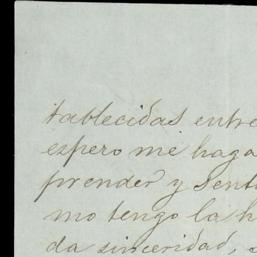 tablecidas entre
espero me haga
prender y sent
mo tengo la h
da sinceridad,